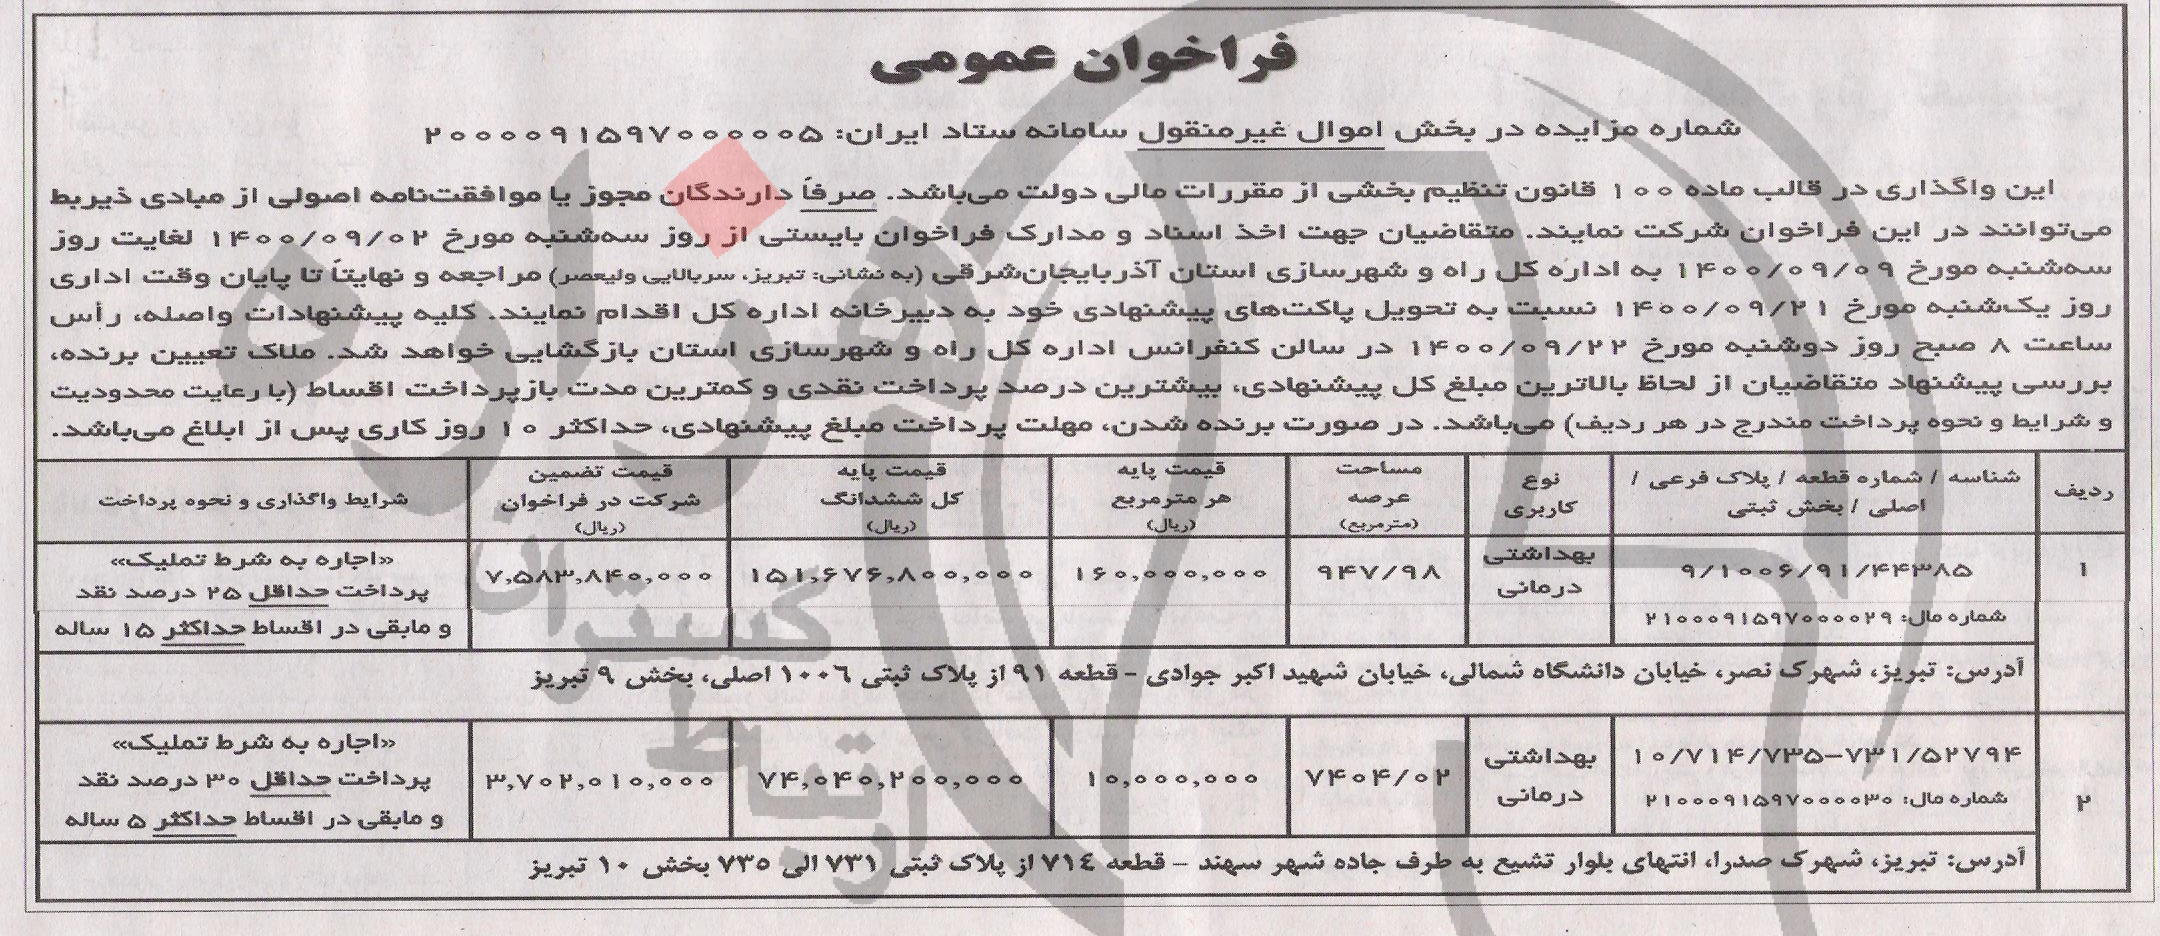 فراخوان عمومی
شماره مزایده در بخش اموال غیرمنقول سامانه ستاد ایران: ۲۰۰۰۰۹۱۵۹۷۰۰۰۰۰۵
این واگذاری در قالب ماده ۱۰۰ قانون تنظیم بخشی از مقررات مالی دولت می‌باشد. صرفاً دارندگان مجوز یا موافقت‌نامه اصولی از مبادی ذیربط
می‌توانند در این فراخوان شرکت نمایند. متقاضیان جهت اخذ اسناد و مدارک فراخوان بایستی از روز سه‌شنبه مورخ ۱۴۰۰/۰۹/۰۲ لغایت روز
سه‌شنبه مورخ ۱۴۰۰/۰۹/۰۹ به اداره کل راه و شهرسازی استان آذربایجان‌شرقی (به نشانی: تبریز، سربالایی ولیعصر) مراجعه و نهایتاً تا پایان وقت اداری
روز یک‌شنبه مورخ ۱۴۰۰/۰۹/۲۱ نسبت به تحویل پاکت‌های پیشنهادی خود به دبیرخانه اداره کل اقدام نمایند. کلیه پیشنهادات واصله، رأس
ساعت ۸ صبح روز دوشنبه مورخ ۱۴۰۰/۰۹/۲۲ در سالن کنفرانس اداره کل راه و شهرسازی استان بازگشایی خواهد شد. ملاک تعیین برنده،
بررسی پیشنهاد متقاضیان از لحاظ بالاترین مبلغ کل پیشنهادی، بیشترین درصد پرداخت نقدی و کمترین مدت بازپرداخت اقساط (با رعایت محدودیت
و شرایط و نحوه پرداخت مندرج در هر ردیف) می‌باشد. در صورت برنده شدن، مهلت پرداخت مبلغ پیشنهادی، حداکثر ۱۰ روز کاری پس از ابلاغ می‌باشد.
ردیف
شناسه / شماره قطعه / پلاک فرعی /
اصلی / بخش ثبتی
نوع
کاربری
مساحت
عرصه
(مترمربع)
قیمت پایه
هر مترمربع
(ریال)
قیمت پایه
کل ششدانگ
(ریال)
قیمت تضمین
شرکت در فراخوان
(ریال)
شرایط واگذاری و نحوه پرداخت
۱
۹/۱۰۰۶/۹۱/۴۴۳۸۵
شماره مال: ۲۱۰۰۰۹۱۵۹۷۰۰۰۰۲۹
بهداشتی
درمانی
۹۴۷/۹۸
۱۶۰,۰۰۰,۰۰۰
۱۵۱,۶۷۶,۸۰۰,۰۰۰
۷,۵۸۳,۸۴۰,۰۰۰
«اجاره به شرط تملیک»
پرداخت حداقل ۲۵ درصد نقد
و مابقی در اقساط حداکثر ۱۵ ساله
آدرس: تبریز، شهرک نصر، خیابان دانشگاه شمالی، خیابان شهید اکبر جوادی - قطعه ۹۱ از پلاک ثبتی ۱۰۰۶ اصلی، بخش ۹ تبریز
۲
۱۰/۷۱۴/۷۳۵-۷۳۱/۵۲۷۹۴
شماره مال: ۲۱۰۰۰۹۱۵۹۷۰۰۰۰۳۰
بهداشتی
درمانی
۷۴۰۴/۰۲
۱۰,۰۰۰,۰۰۰
۷۴,۰۴۰,۲۰۰,۰۰۰
۳,۷۰۲,۰۱۰,۰۰۰
«اجاره به شرط تملیک»
پرداخت حداقل ۳۰ درصد نقد
و مابقی در اقساط حداکثر ۵ ساله
آدرس: تبریز، شهرک صدرا، انتهای بلوار تشیع به طرف جاده شهر سهند - قطعه ۷۱۴ از پلاک ثبتی ۷۳۱ الی ۷۳۵ بخش ۱۰ تبریز
هزاره
گستران
ارتباط